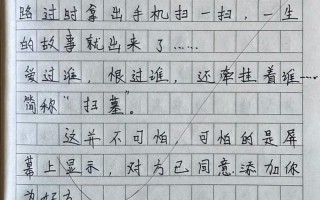 路过时拿出手机扫一扫，一生
的故事就出来了……
爱过谁，恨过谁，还牵挂着谁……
简称“扫墓”。
这并不可怕 可怕的是屏
幕上显示，对方已同意添加你
为好友